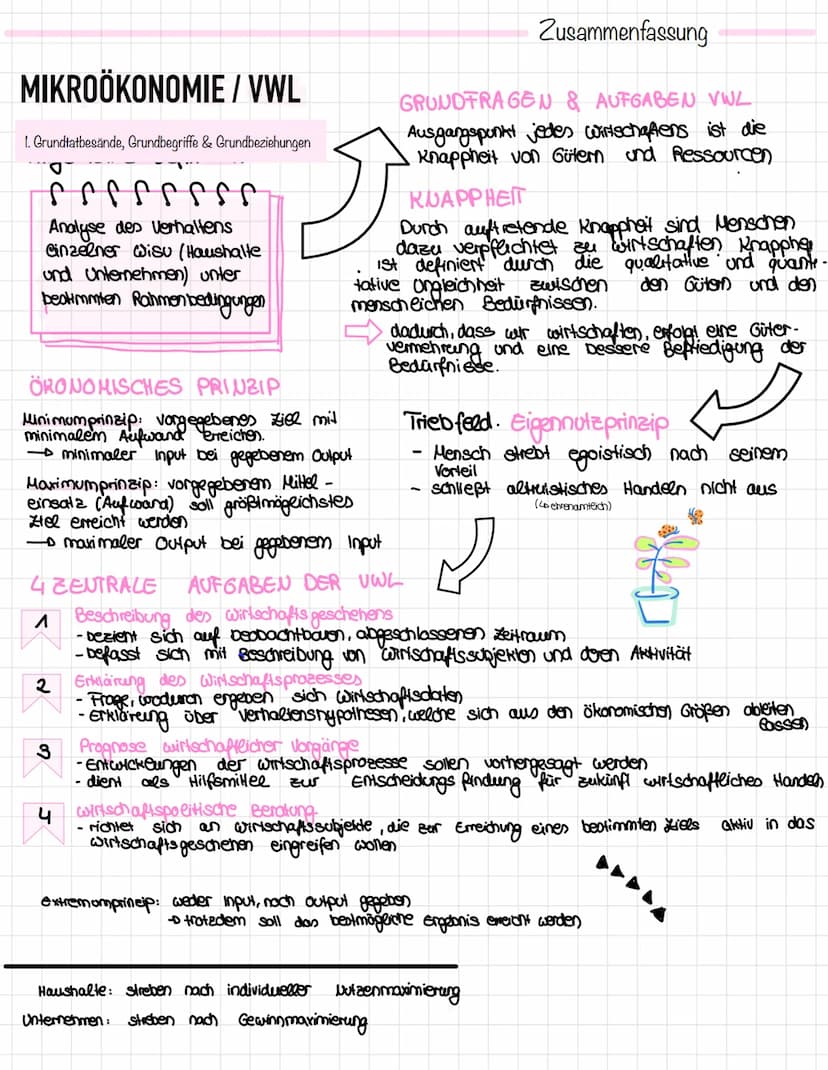 Zusammenfassung
MIKROÖKONOMIE / VWL
1. Grundtatbesände, Grundbegriffe & Grundbeziehungen
Analyse des Verhaltens
einzelner Wisu (Haushalte
und Unternehmen) unter
bestimmten Rahmenbedingungen
GRUNDFRAGEN & AUFGABEN VWL
Ausgangspunkt jedes Wirtschaftens ist die
Knappheit von Gütern und Ressourcen
KNAPPHEIT
Durch auftretende Knappheit sind Menschen
dazu verpflichtet zu wirtschaften. Knapphei
ist definiert durch die qualitative und quanti-
tative Ungleichheit zwischen den Gütern und den
menschlichen Bedürfnissen.
dadurch, dass wir wirtschaften, erfolgt eine Güter-
vermehrung und eine bessere Befriedigung der
Bedürfnisse.
ÖKONOMISCHES PRINZIP
Minimumprinzip: vorgegebenes Ziel mit
minimalem Aufwand erreichen.
→ minimaler Input bei gegebenem Output
Maximumprinzip: vorgegebenen Mittel-
einsatz (Aufwand) soll größtmöglichstes
Ziel erreicht werden
→ maximaler Output bei gegebenem Input
Triebfeld. Eigennutzprinzip
- Mensch strebt egoistisch nach seinem
Vorteil
- schließt altruistisches Handeln nicht aus
(↳ ehrenamtlich)
4 ZENTRALE AUFGABEN DER VWL
1 Beschreibung des Wirtschaftsgeschehens
- bezieht sich auf beobachtbaren, abgeschlossenen Zeitraum
- befasst sich mit Beschreibung von Wirtschaftssubjekten und deren Aktivität
2 Erklärung des Wirtschaftsprozesses
- Frage, wodurch ergeben sich Wirtschaftsdaten
- Erklärung über Verhaltenshypothesen, welche sich aus den ökonomischen Größen ableiten
lassen
3 Prognose wirtschaftlicher Vorgänge
- Entwicklungen der Wirtschaftsprozesse sollen vorhergesagt werden
- dient als Hilfsmittel zur Entscheidungsfindung für zukünft wirtschaftliches Handeln
4 wirtschaftspolitische Beratung
- richtet sich an Wirtschaftssubjekte, die zur Erreichung eines bestimmten Ziels aktiv in das
Wirtschaftsgeschehen eingreifen wollen
Extremumprinzip: weder Input, noch Output gegeben
→ trotzdem soll das bestmögliche Ergebnis erreicht werden
Haushalte: streben nach individueller Nutzenmaximierung
Unternehmen: streben nach Gewinnmaximierung